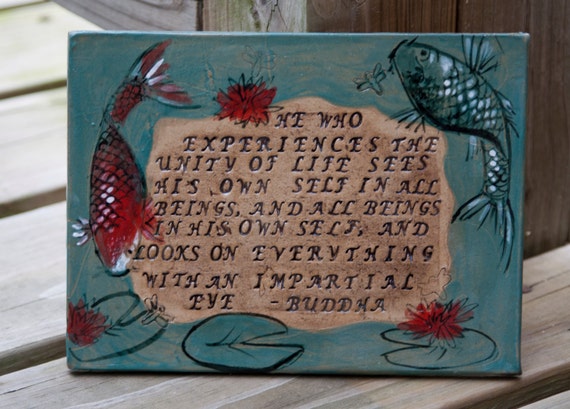 HE WHO
EXPERIENCES THE
UNITY OF LIFE SEES
HIS OWN SELF IN ALL
BEINGS, AND ALL BEINGS
IN HIS OWN SELF, AND
LOOKS ON EVERYTHING
WITH AN IMPARTIAL
EYE -BUDDHA